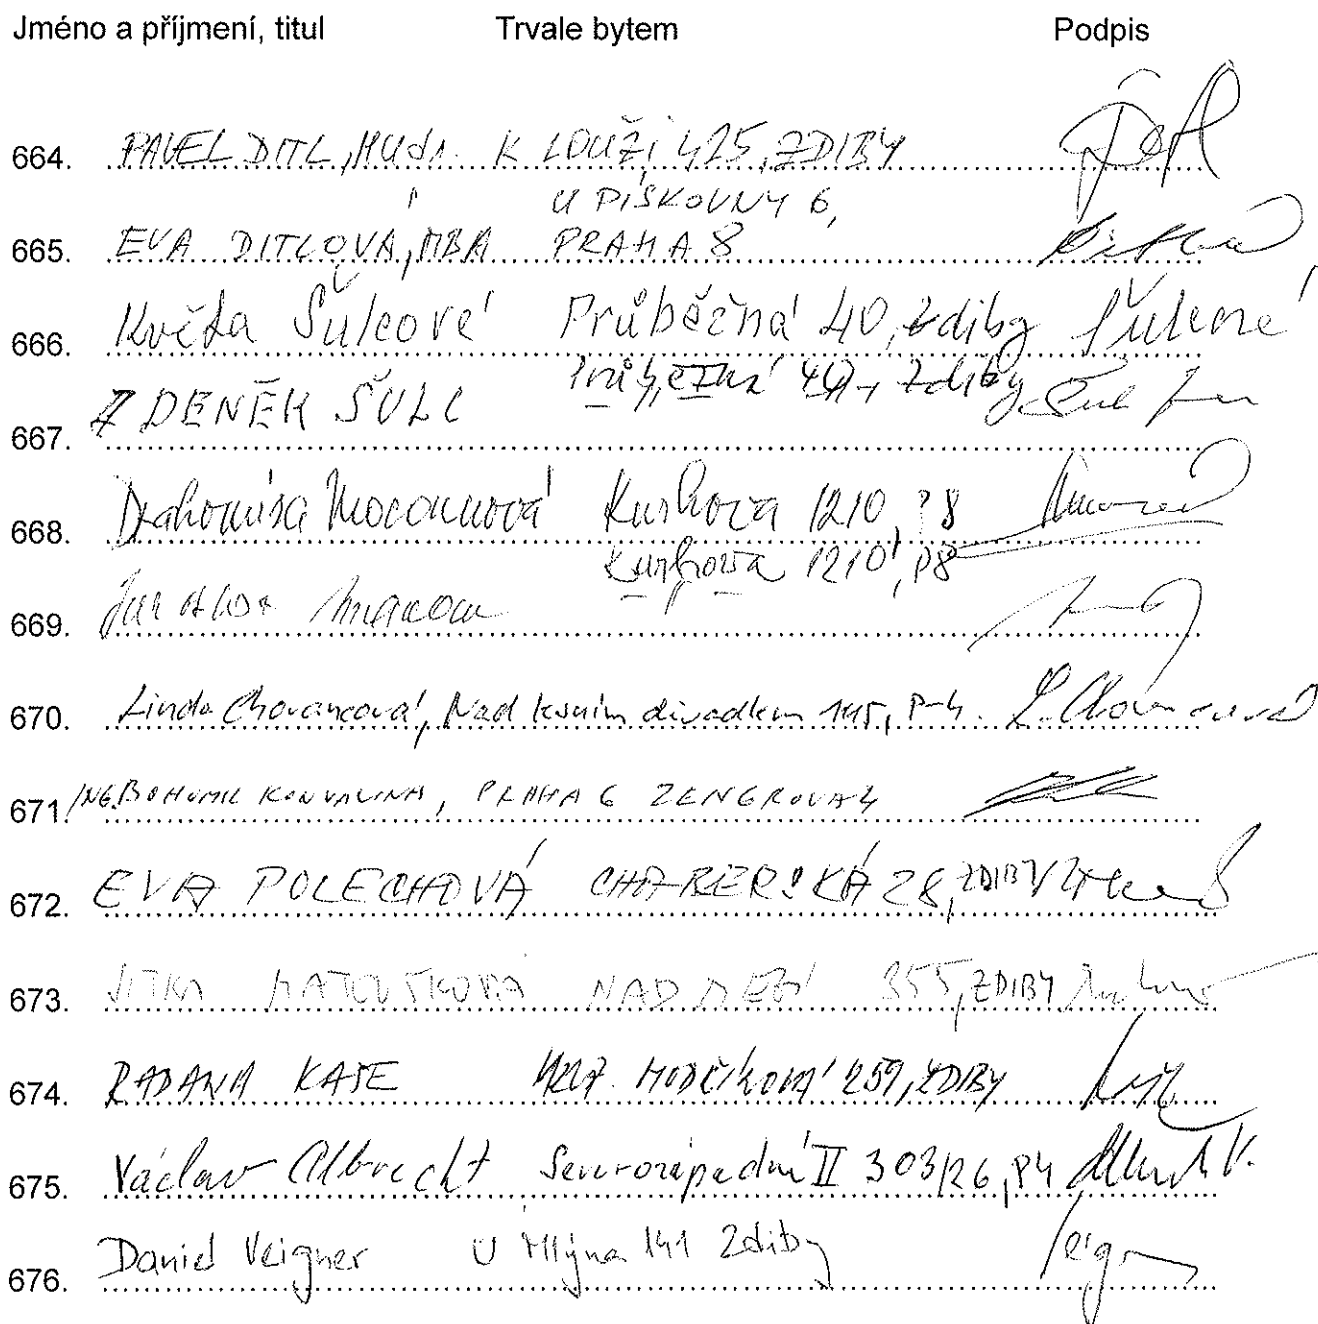 Jméno a příjmení, titul Trvale bytem Podpis
664. PAVEL DITL, MUDr. K LOUŽI 425, ZDIBY
U PÍSKOVNY 6,
665. EVA DITLOVÁ, MBA PRAHA 8
666. Květa Šulcová Průběžná 40, Zdiby Šulcová
667. ZDENĚK ŠULC Průběžná 40, Zdiby
668. Drahomíra Kurkova 1210, P8
669. 1210, P8
670. Linda Chovancová, Nad lesním divadlem, P-4. L. Chovancová
671. ING. BOHUMIL KONVALINA, PRAHA 6 ZENGROVA 4
672. EVA POLECHOVÁ 28, ZDIBY
673. JITKA MATOUŠKOVÁ NAD MEZÍ 355, ZDIBY
674. RADANA KAŠE 259, ZDIBY
675. Václav Albrecht Severozápadní II 303/26, P4
676. Daniel Veigner U Mlýna 141 Zdiby